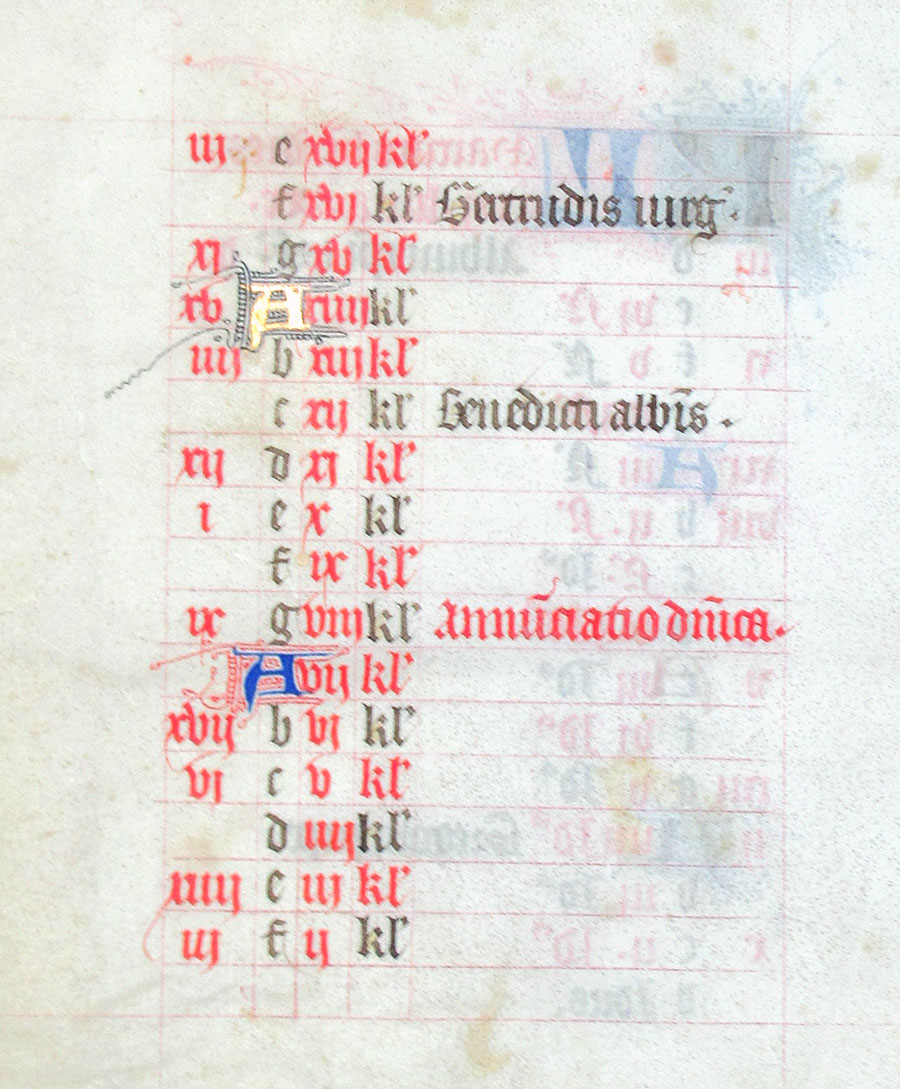 iij e xvij kl'
f xvi kl' Gertrudis uirg̃.
xj g xv kl'
xv A xiiij kl'
iiij b xiij kl'
c xij kl' Benedicti abb̃is.
xij d xj kl'
i e x kl'
f ix kl'
ix g viij kl' Annũciatio dñica.
A vij kl'
xvij b vj kl'
vj c v kl'
d iiij kl'
xiiij e iij kl'
iij f ij kl'